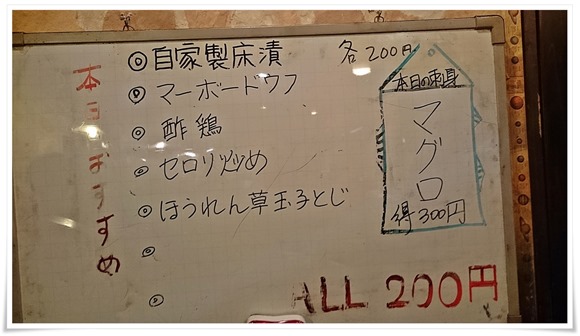 本日のおすすめ
◎自家製床漬 各200円
◎マーボードウフ
◎酢鶏
◎セロリ炒め
◎ほうれん草玉子とじ
◎
◎
本日の刺身
マグロ
得300円
ALL 200円